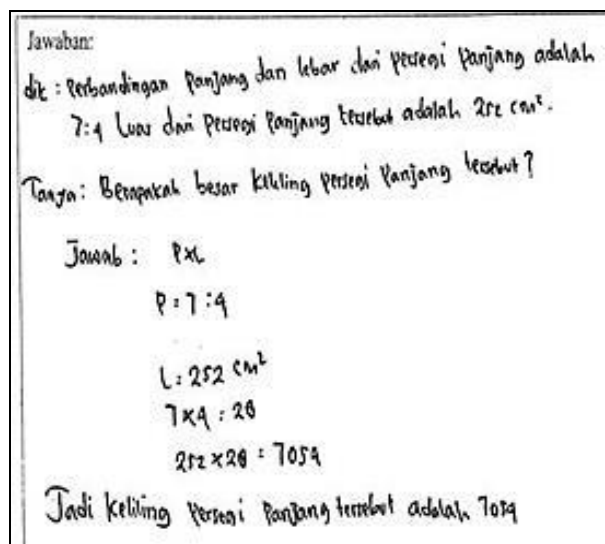 Jawaban:
dik : Perbandingan Panjang dan lebar dari persegi panjang adalah
7:4 Luas dari persegi Panjang tersebut adalah 252 cm².
Tanya : Berapakah besar keliling persegi Panjang tersebut ?
Jawab : PxL
P = 7 : 4
L = 252 cm²
7 x 4 = 28
252 x 28 = 7054
Jadi keliling persegi Panjang tersebut adalah 7054